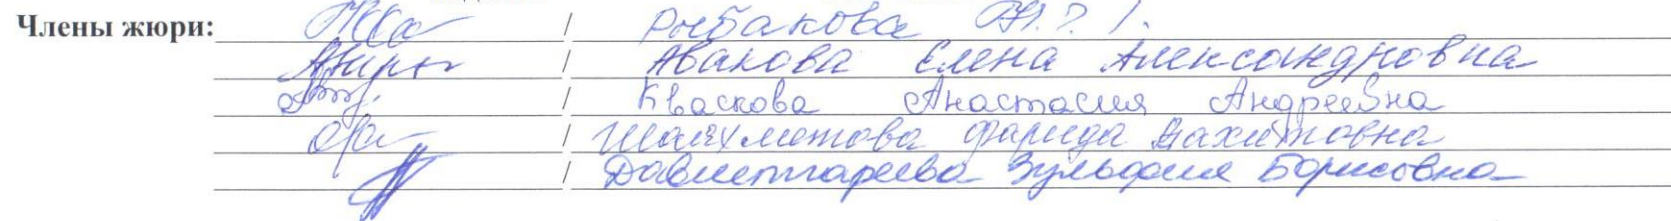 Члены жюри: / Рыбакова
/ Авакова Елена Александровна
/ Кваскова Анастасия Андреевна
/ Шаяхметова Фарида
/ Давлетгареева Зульфия Борисовна